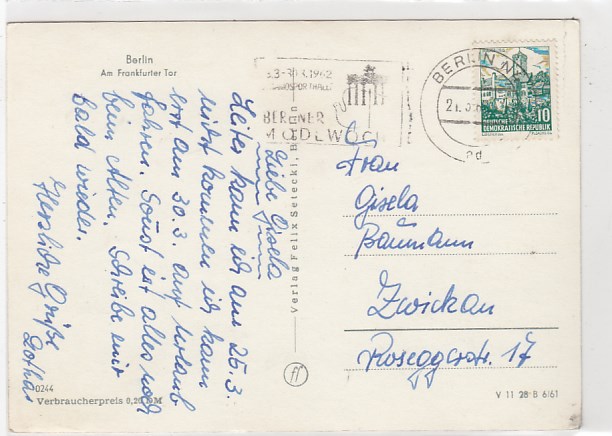 Berlin
Am Frankfurter Tor
Liebe Gisela
Leider kann ich am 25.3.
nicht kommen ich kann
erst am 30.3. auf Urlaub
fahren. Sonst ist alles noch
beim Alten. Schreibe mir
bald wieder.
Herzliche Grüße
Lothar
0244
Verbraucherpreis 0,20 DM
Verlag Felix Setecki, Berlin
1962
BERLINER
MODEWOCHE
BERLIN
10
DEUTSCHE
DEMOKRATISCHE REPUBLIK
Frau
Gisela
Baumann
Zwickau
Roseggerstr. 17
V 11 28 B 6161